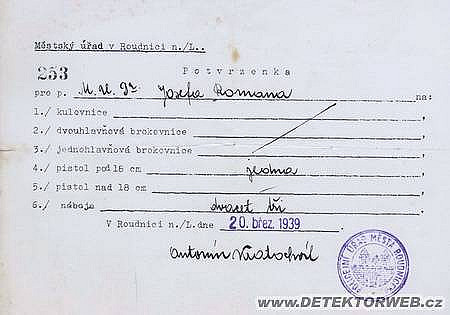 Městský úřad v Roudnici n./L..
253
Potvrzenka
pro p. M.U.Dr Josefa Romana na:
1./ kulovnice
2./ dvouhlavňové brokovnice
3./ jednohlavňové brokovnice
4./ pistol pod 18 cm jedna
5./ pistol nad 18 cm
6./ náboje dvacet tři
V Roudnici n./L.dne 20. břez. 1939
Antonín
POLICEJNÍ ÚŘAD MĚSTA ROUDNICE
www.DETEKTORWEB.cz